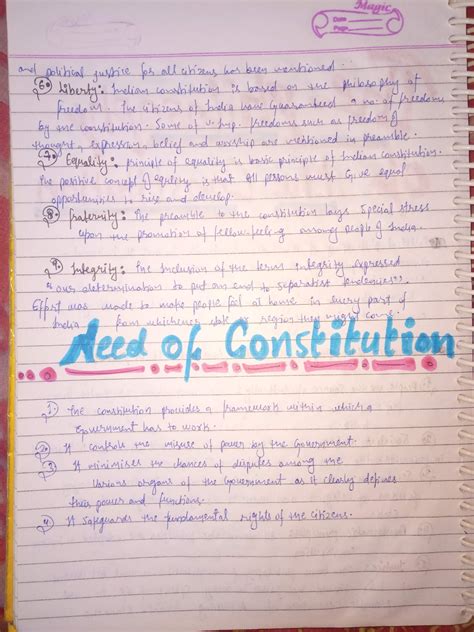 Magic
Date
Page
and political justice for all citizens has been mentioned.
6. Liberty: Indian constitution is based on the philosophy of
freedom. The citizens of India have Guaranteed a no. of freedoms
by the constitution. Some of v. Imp. freedoms such as freedom of
thought, expression, belief and worship are mentioned in preamble.
7. Equality: principle of equality is basic principle of Indian constitution.
The positive concept of equality is that All persons must Give equal
opportunities to rise and develop.
8. Fraternity: The preamble to the constitution lays Special stress
upon the promotion of fellowfeeling among people of India.
9. Integrity: The Inclusion of the term integrity expressed
"our determination to put an end to separatist tendencies".
Effort was made to make people feel at home in every part of
India from whichever state or region they might come.
Need of Constitution
1. The constitution provides a framework within which a
Government has to work.
2. It controls the misuse of power by the Government.
3. It minimises the chances of disputes among the
Various organs of the Government as it clearly defines
their power and functions.
4. It Safeguards the fundamental rights of the citizens.